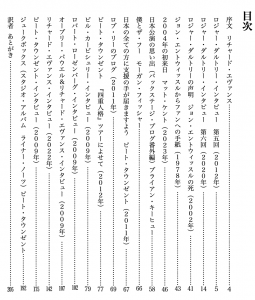 目次
序文　リチャード・エヴァンス……4
ロジャー・ダルトリー・インタビュー　第五回（2012年）……5
ロジャー・ダルトリー・インタビュー　第六回（2020年）……14
ロジャー・ダルトリーの声明　ジョン・エントウィッスルの死（2002年）……41
ジョン・エントウィッスルからファンへの手紙（1978年）……43
2004年の初来日　マット・ケント……46
日本公演の思い出（バックステージ・ブログ番外編）ブライアン・キーヒュー……58
僕とザ・フー　モーガン・フィッシャー……62
日本の全ての方に支援の手が届きますよう　ピート・タウンゼント（2011年）……67
ロブのブログ（2011年）……69
ピート・タウンゼント　『四重人格』ツアーによせて（2012年）……77
ビル・カービシュリー・インタビュー（2009年）……79
ロバート・ローゼンバーグ・インタビュー（2009年）……92
オーブリー・パウエル&リチャード・エヴァンス・インタビュー（2009年）……102
リチャード・エヴァンス・インタビュー（2022年）……107
ピート・タウンゼント・インタビュー（2009年）……115
ピート・タウンゼント・インタビュー
ジュークボックス（スタジオ・アルバム　ライナーノーツ）ピート・タウンゼント
訳者　あとがき……395